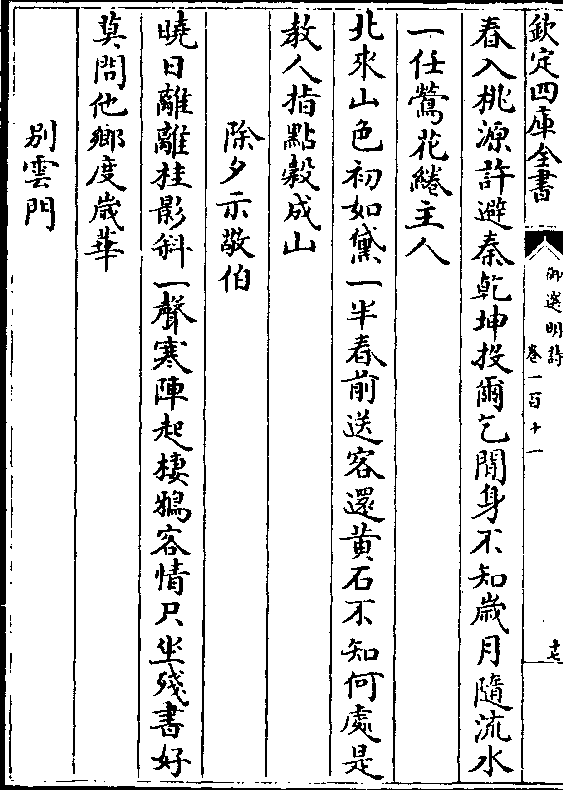 欽定四庫全書
御選明詩
卷一百十一
十七
春入桃源許避秦乾坤投爾乞閒身不知歲月隨流水
一任鶯花綣主人
北來山色初如黛一半春前送客還黃石不知何處是
教人指點穀成山
除夕示敬伯
曉日離離桂影斜一聲寒陣起棲鴉客情只坐殘書好
莫問他鄉度歲華
別雲門